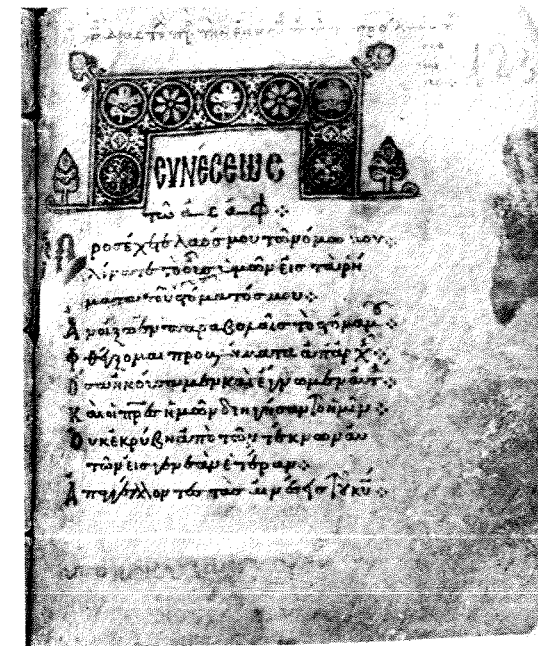 ϲυνέϲεωϲ
τῶ ἀσάφ
Προσέχετε λαόσ μου τὸν νόμον μου
κλίνατε τὸ οὖσ ὑμῶν εἰσ τὰ ρή
ματα τοῦ στόματόσ μου
Ἀνοίξω ἐν παραβολαῖσ τὸ στόμα μου
Φθέγξομαι προβλήματα ἀπαρχ
Ὅσα ἠκούσαμεν καὶ ἔγνωμεν αὐτ
Καὶ οἱ πρεσ ἡμῶν διηγήσαντο ἡμῖν
Οὐκ ἐκρύβη ἀπὸ τῶν τέκνων αὐ
τῶν εἰσ γενεὰν ἑτέραν
Ἀπαγγέλλοντεσ τὰσ αἰνέσεισ τοῦ κῦ